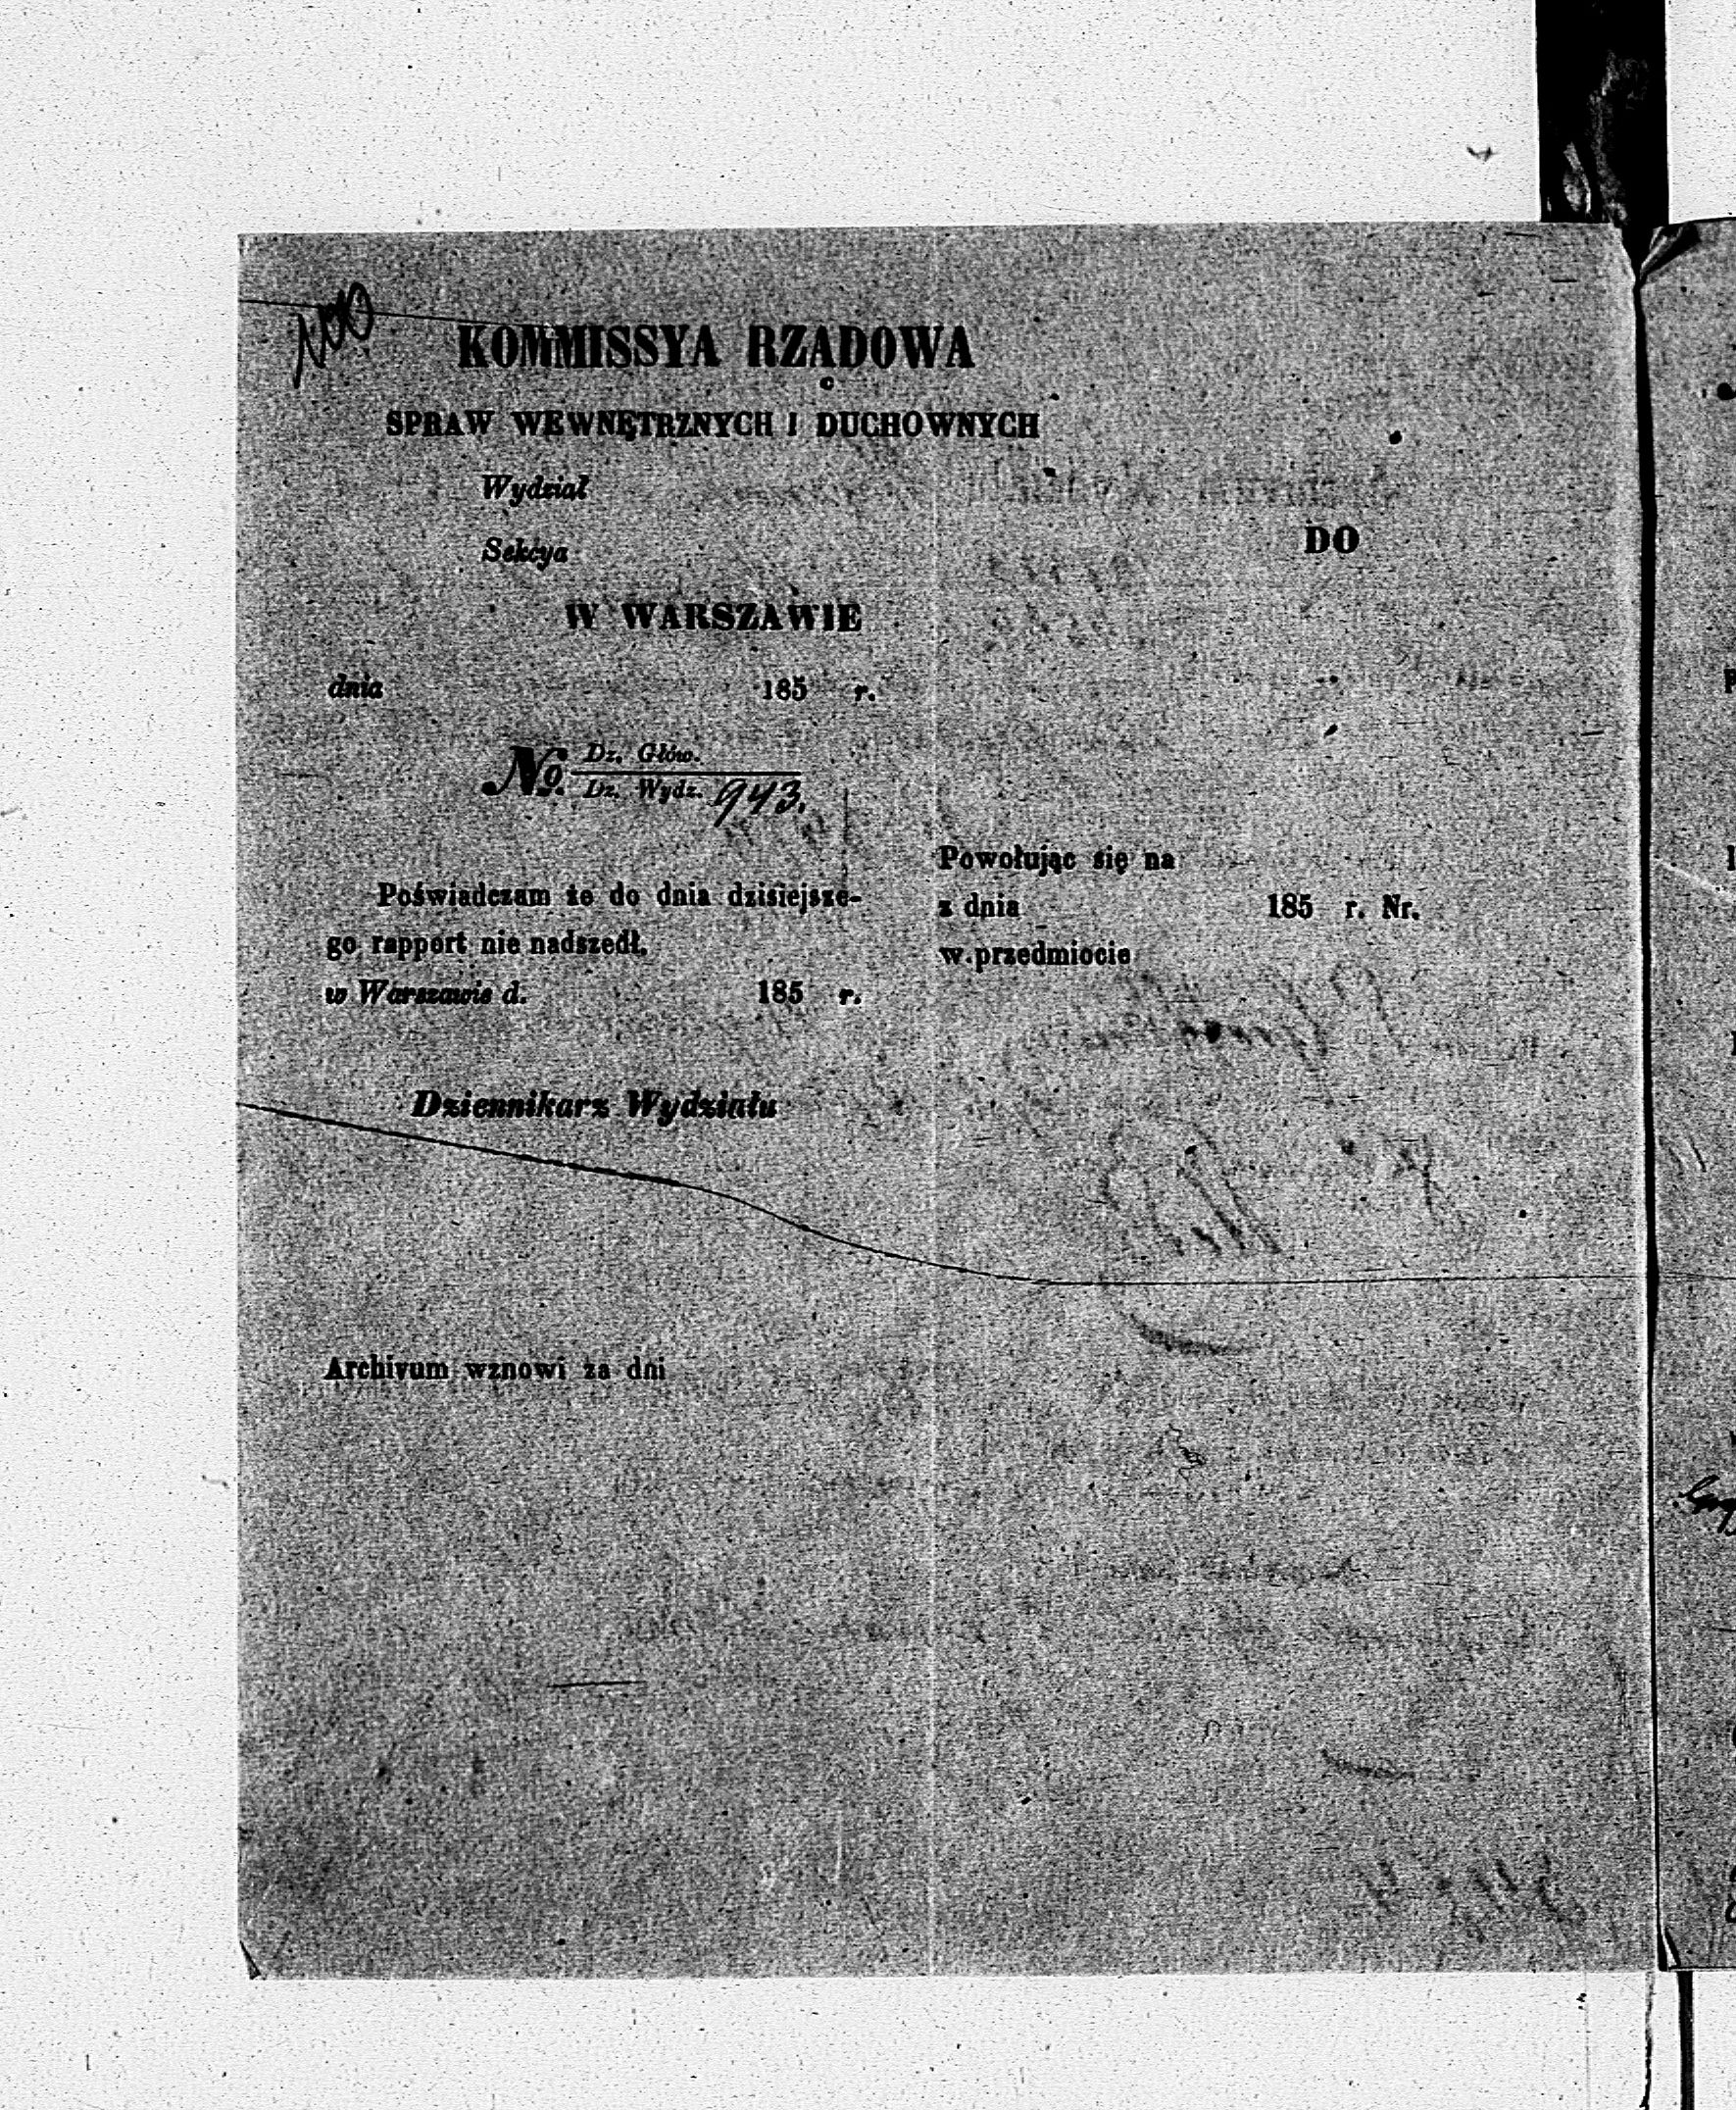 100
KOMMISSYA RZĄDOWA
SPRAW WEWNĘTRZNYCH I DUCHOWNYCH
Wydział
Sekcya
W WARSZAWIE
dnia 185 r.
No. Dz. Głów.
Dz. Wydz. 943.
Poświadczam że do dnia dzisiejsze-
go rapport nie nadszedł.
w Warszawie d. 185 r.
Dziennikarz Wydziału
Archivum wznowi za dni
DO
Powołując się na
z dnia 185 r. Nr.
w przedmiocie